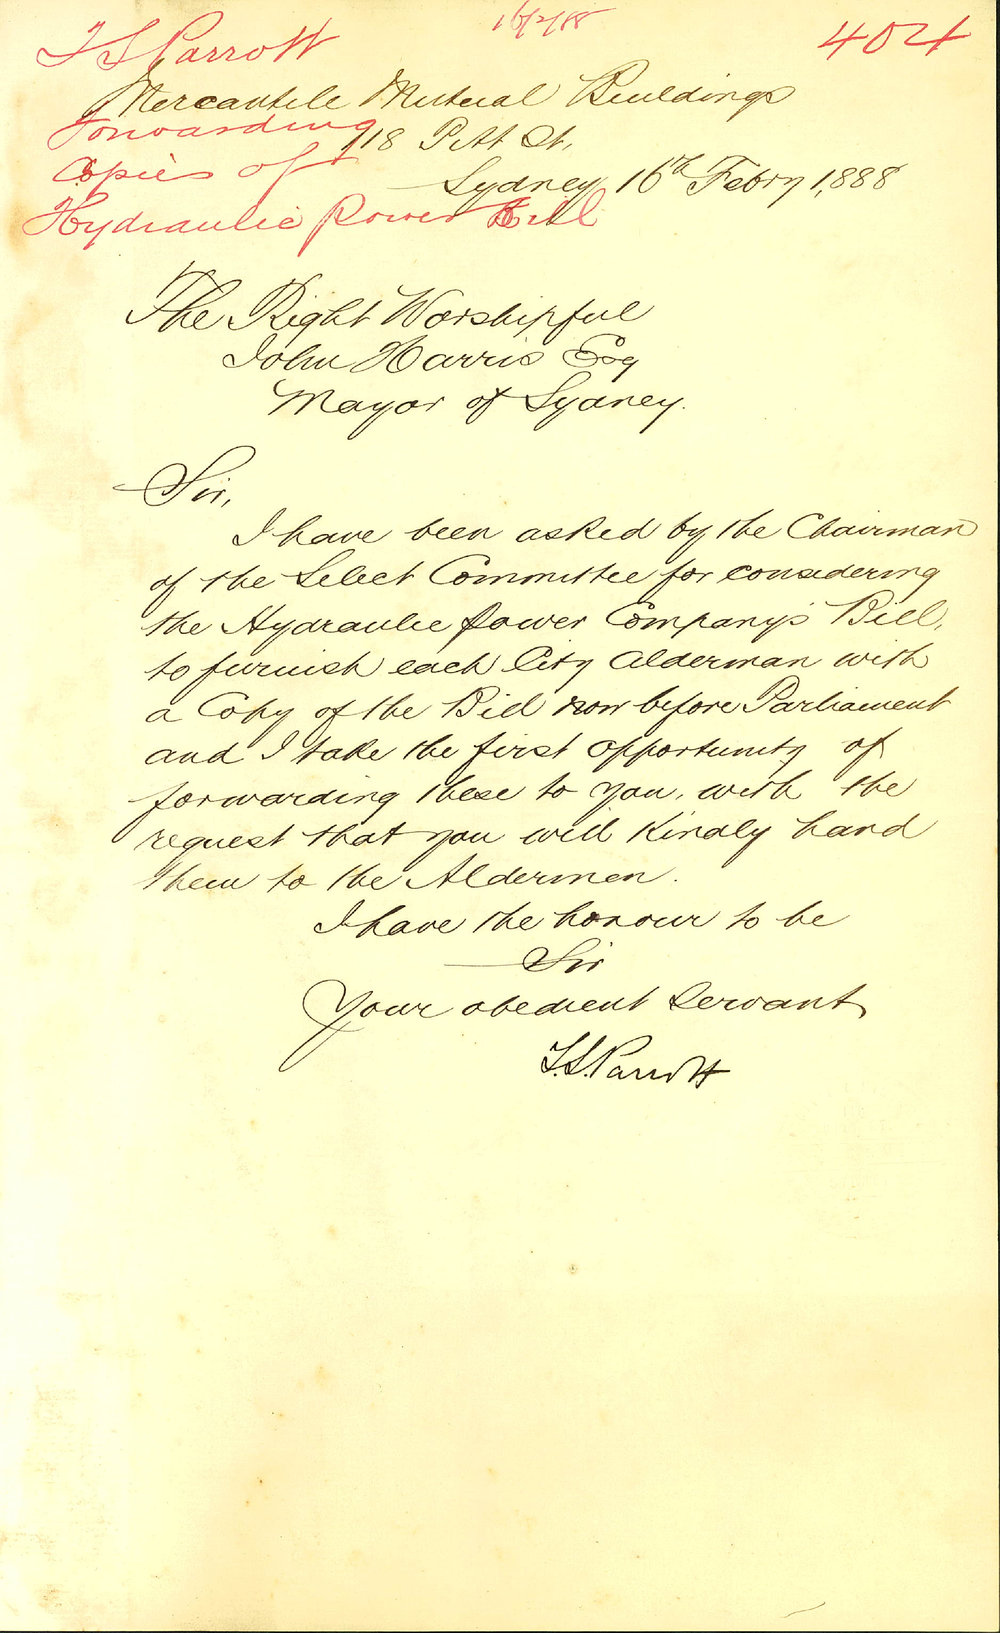 16/2/88
404
T S Parrott
Mercantile Mutual Buildings
Forwarding
118 Pitt St,
Copies of
Sydney 16th Febry 1888
Hydraulic Power Bill
The Right Worshipful
John Harris Esq
Mayor of Sydney.
Sir,
I have been asked by the Chairman
of the Select Committee for considering
the Hydraulic Power Company's Bill,
to furnish each City Alderman with
a Copy of the Bill now before Parliament
and I take the first opportunity of
forwarding these to you, with the
request that you will kindly hand
them to the Aldermen.
I have the honour to be
Sir
Your obedient Servant
T.S. Parrott